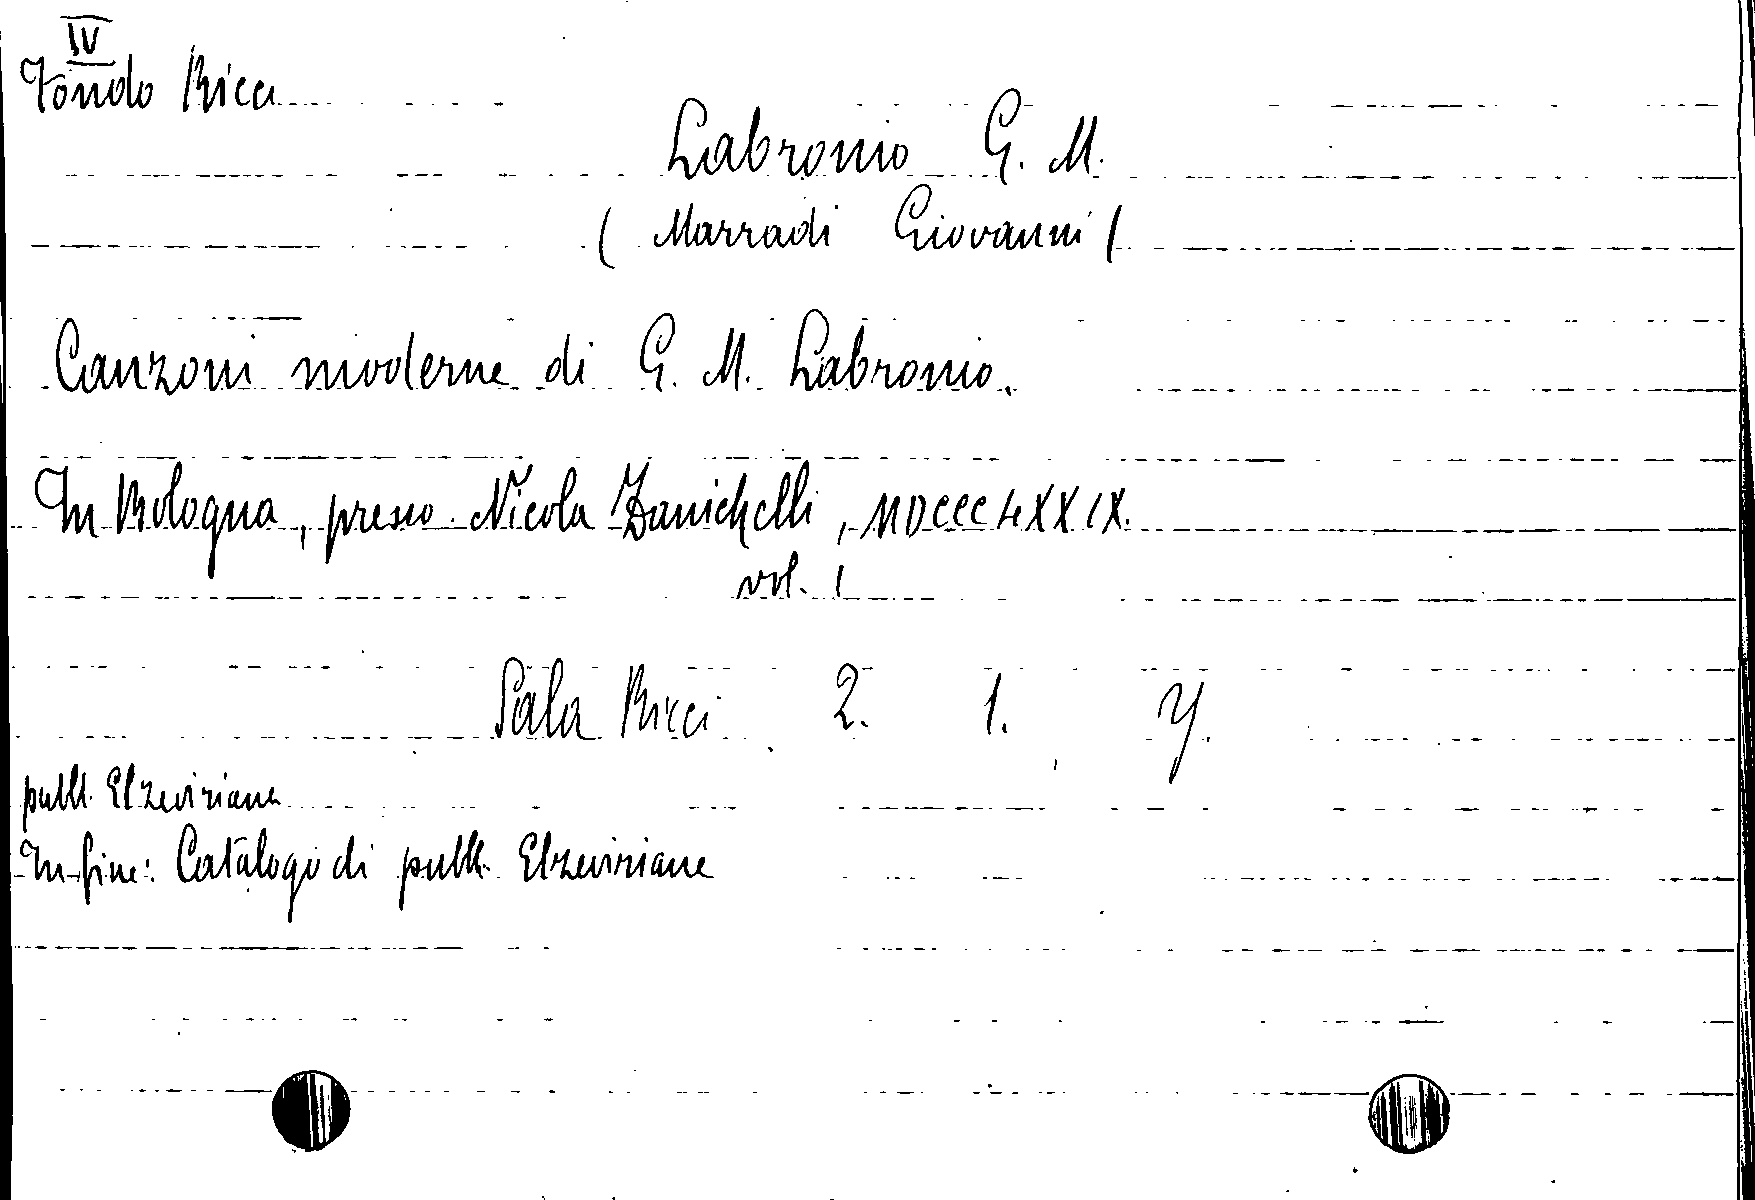 IV
Fondo Ricci
Labronio G. M.
( Marradi Giovanni (
Canzoni moderne di G. M. Labronio.
In Bologna, presso Nicola Zanichelli, MDCCCLXXIX.
vol. 1
Sala Ricci 2. 1. Y.
pubbl. Elzeviriana
In fine: Catalogo di pubbl. Elzeviriane